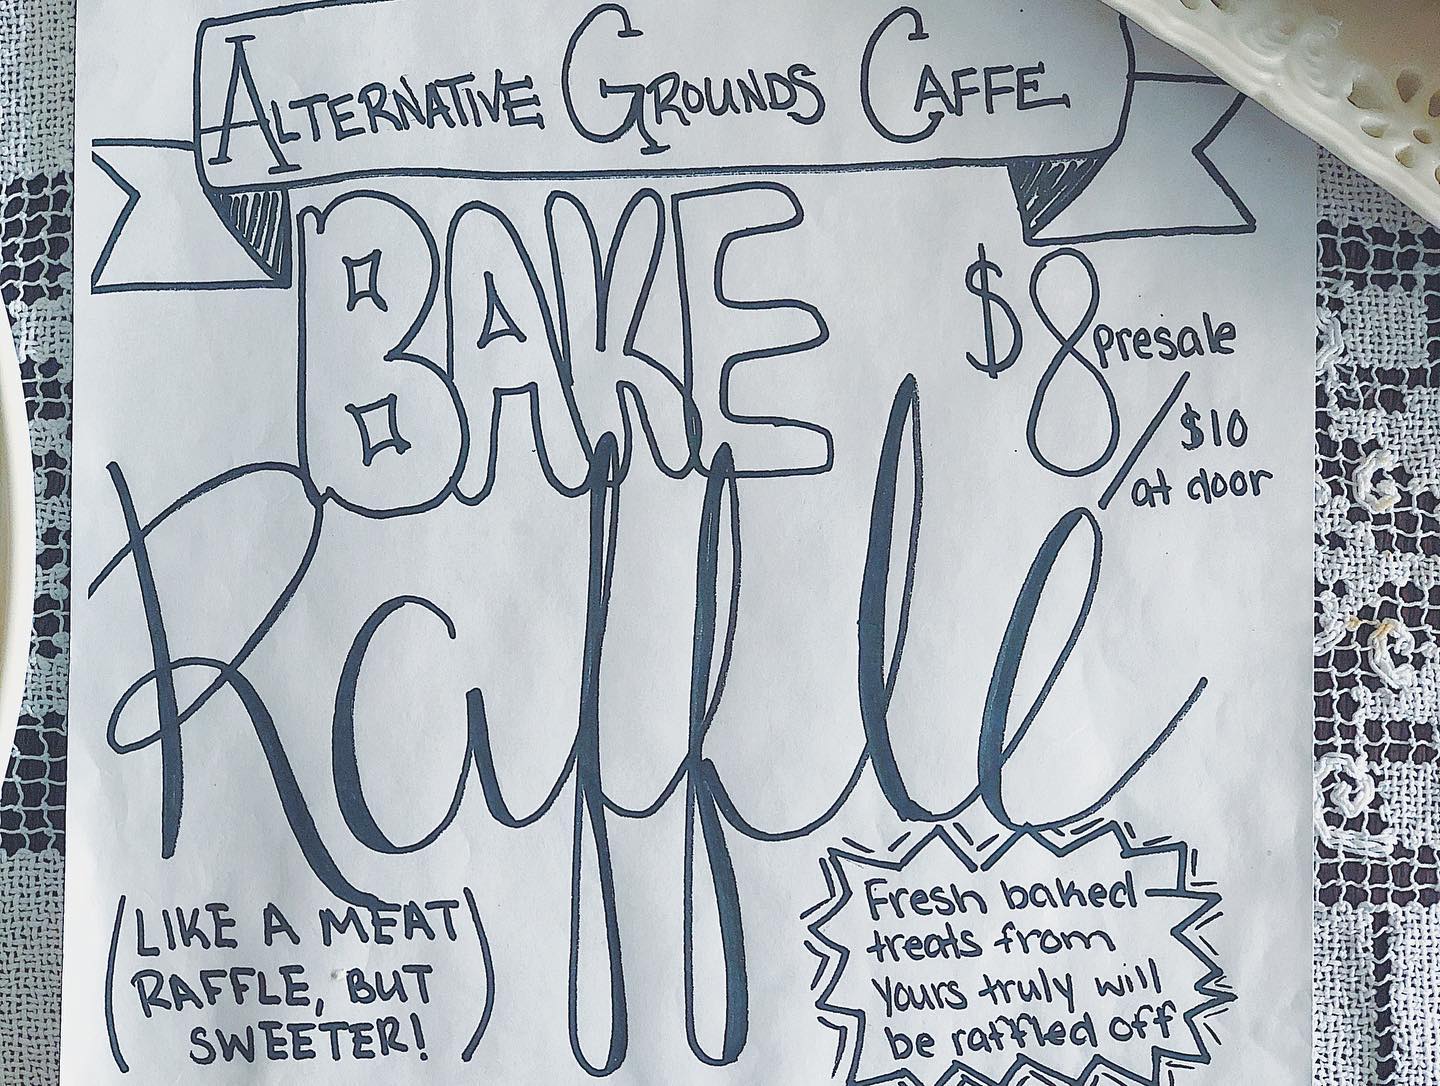 ALTERNATIVE GROUNDS CAFFE
BAKE
$8 presale
/ $10
at door
Raffle
(LIKE A MEAT
RAFFLE, BUT
SWEETER!)
Fresh baked
treats from
yours truly will
be raffled off